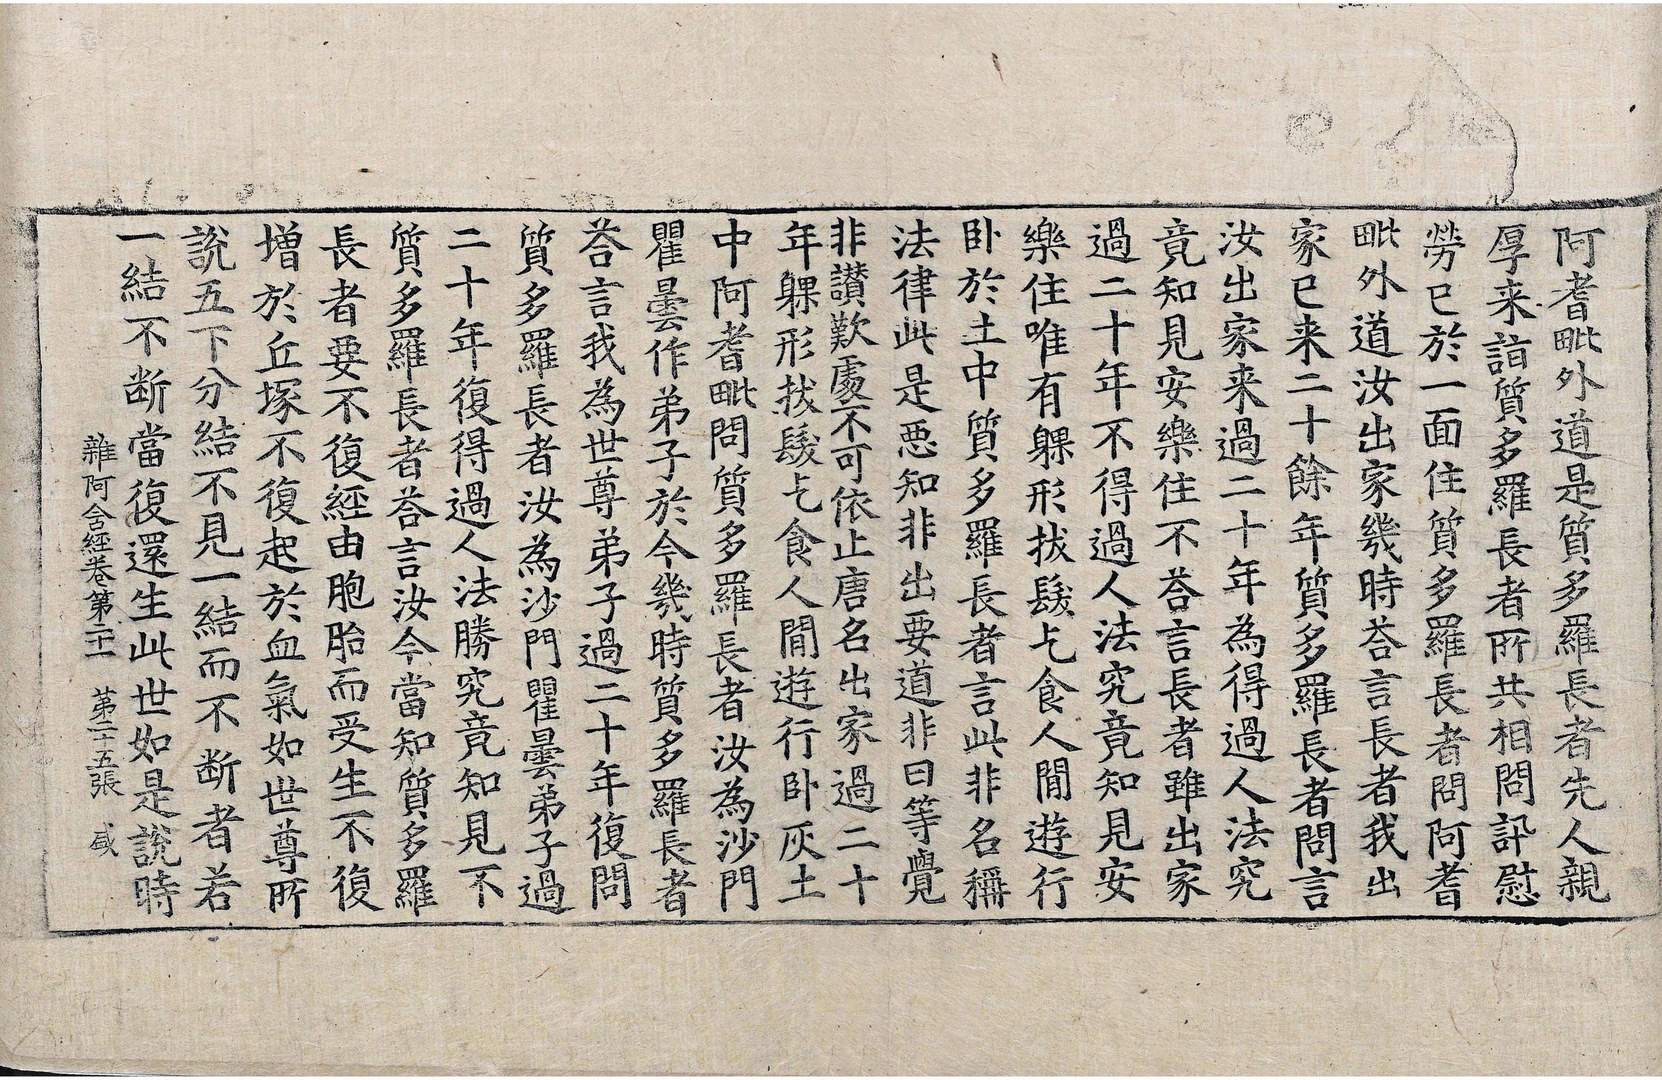 阿耆毗外道是質多羅長者先人親
厚来詣質多羅長者所共相問訊慰
勞已於一面住質多羅長者問阿耆
毗外道汝出家幾時荅言長者我出
家已来二十餘年質多羅長者問言
汝出家来過二十年為得過人法究
竟知見安樂住不荅言長者雖出家
過二十年不得過人法究竟知見安
樂住唯有躶形拔髮乞食人閒遊行
卧於土中質多羅長者言此非名稱
法律此是悪知非出要道非曰等覺
非讃歎處不可依止唐名出家過二十
年躶形拔髮乞食人閒遊行卧灰土
中阿耆毗問質多羅長者汝為沙門
瞿曇作弟子於今幾時質多羅長者
荅言我為世尊弟子過二十年復問
質多羅長者汝為沙門瞿曇弟子過
二十年復得過人法勝究竟知見不
質多羅長者荅言汝今當知質多羅
長者要不復經由胞胎而受生不復
增於丘塚不復起於血氣如世尊所
說五下分結不見一結而不断者若
一結不断當復還生此世如是說時
雜阿含經卷第二十一 第二十五張 盛